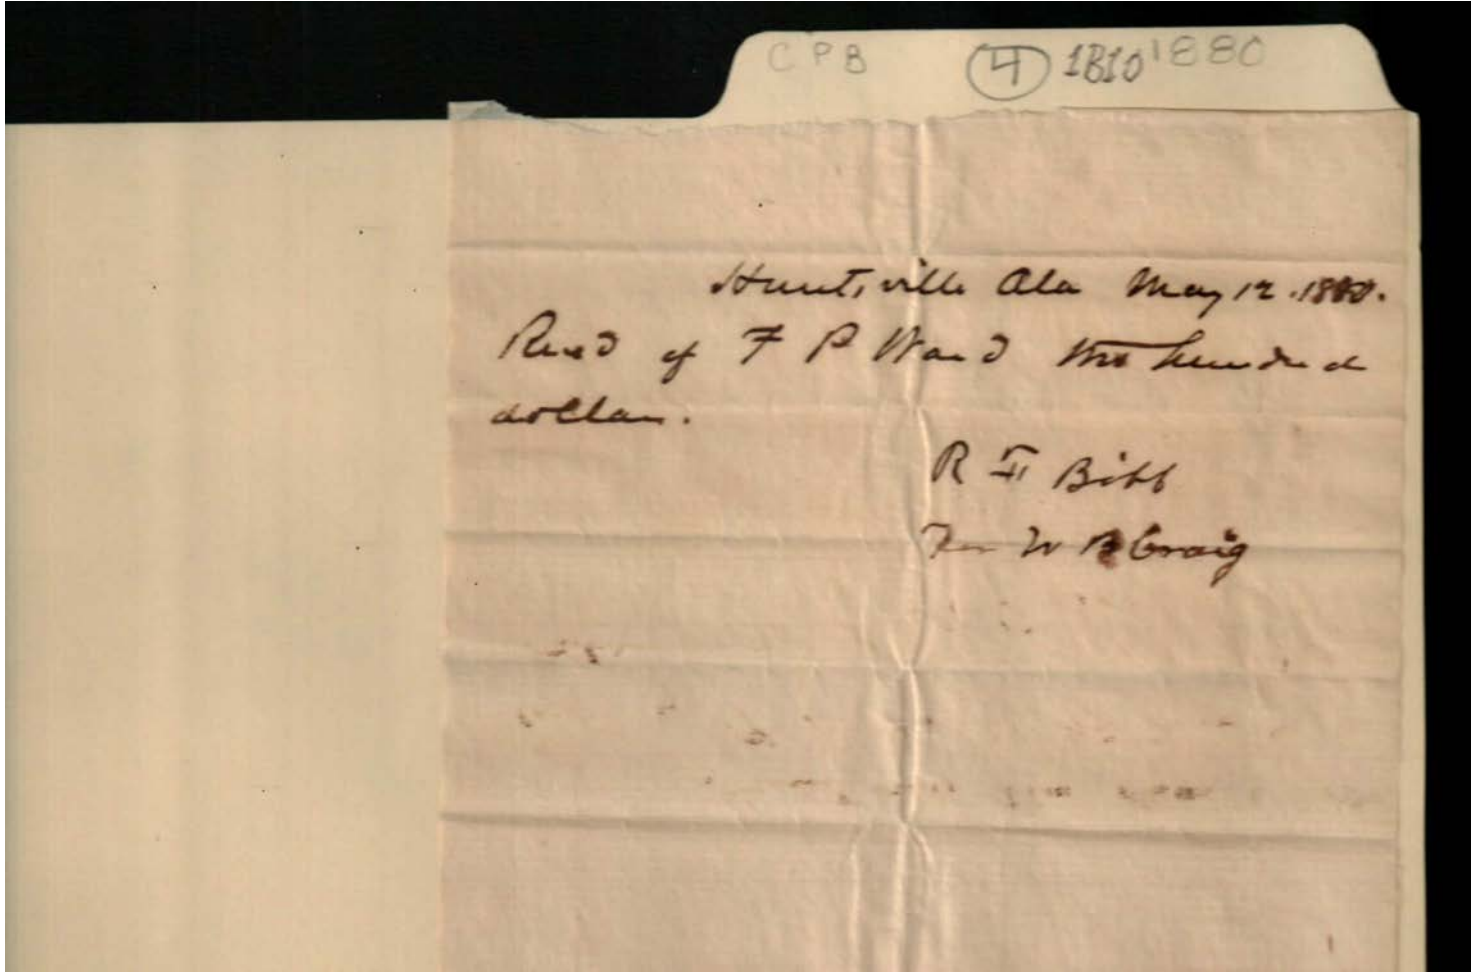 CPB 4 1B10 1880
Huntsville Ala May 12. 1880.
Recd of F P Ward hundred
dollars.
R F Bibb
For W B Craig